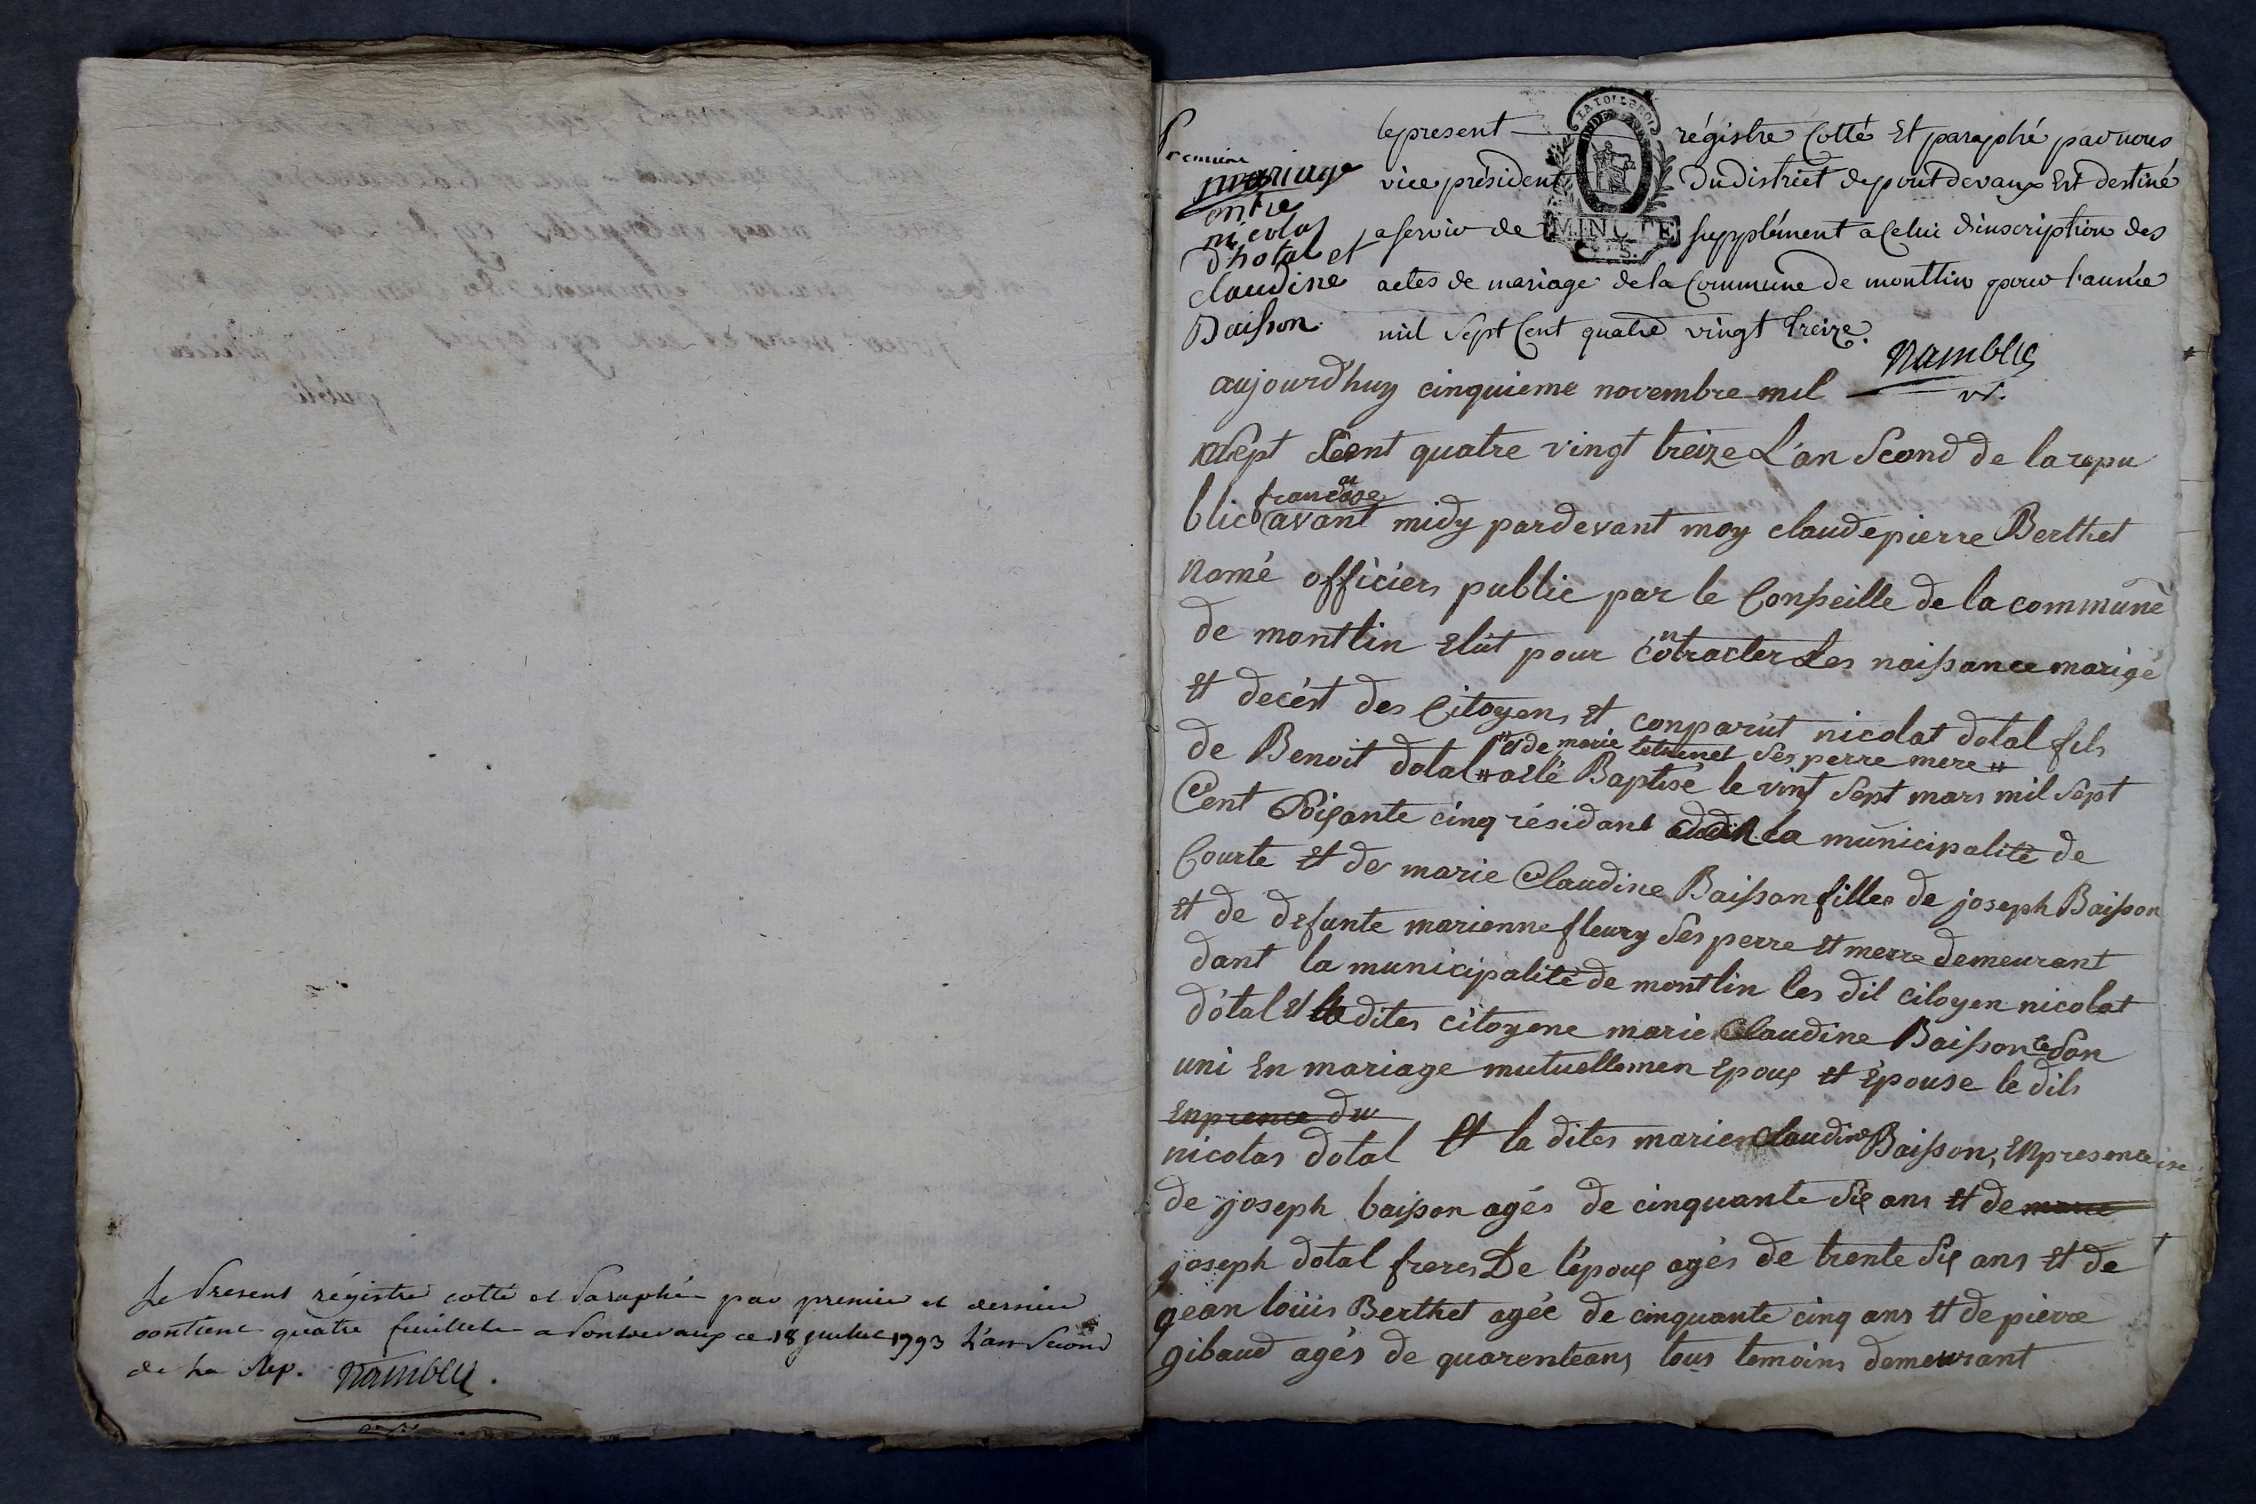 Le present régistre cotté et Paraphé par premier et dernier
contient quatre feuillets a Pontdevaux ce 18 juillet 1793 L'an Second
de La Rep.
Premiere
mariage
entre
nicolas
d'hotal et
claudine
Baisson.
le present régistre Cotté Et paraphé par nous
vice président du district de pont devaux Est destiné
a servir de supplément a Celui d'inscription des
actes de mariage de la Commune de montlin pour l'année
mil Sept Cent quatre vingt treize.
LA LOI LE ROI
MINUTE
aujourd'huy cinquieme novembre mil
Sept Cent quatre vingt treize L'an Second de la repu
francaise
blic avant midy pardevant moy claude pierre Berthet
nomé officiers public par le Conseille de la commune
de montlin Elut pour contracter Les naissance marige
Et decést des Citoyens Et conparut nicolat dotal fils
et de marie ses perre mere #
de Benoit dotal # aété Baptisé le vint Sept mars mil Sept
Cent Soiçante cinq résidant la municipalité de
Courte Et de marie Claudine Baisson filles de joseph Baisson
Et de defunte marienne fleury Ses perre Et merre demeurant
dant la municipalité de montlin les dit citoyen nicolat
dotal Et la dites citoyene marie Claudine Baisson ce Son
uni En mariage mutuellemen Epoux Et Epouse le dits
Enprence du
nicolas dotal Et la dites marie claudine Baisson, Enpresence
de joseph baisson agés de cinquante Six ans Et de
joseph dotal freres De l'époux agés de trente Six ans Et de
jean loüis Berthet agée de cinquante cinq ans Et de pierre
gibaud agés de quarenteans tous temoins demeurant